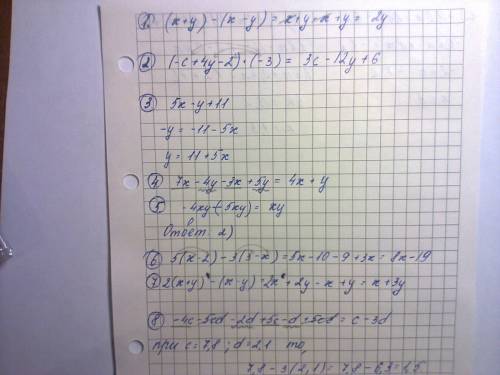 1. (x+y) - (x-y) = x+y-x+y = 2y
2 (-c+4y-2)·(-3) = 3c-12y+6
3 5x-y+11
-y = -11-5x
y = 11+5x
4 7x-4y-3x+5y = 4x+y
5 -4xy-(-5xy) = xy
Ответ: 2)
6 5(x-2)-3(3-x)=5x-10-9+3x=8x-19
7 2(x+y)-(x-y)=2x+2y-x+y=x+3y
8 -4c-5cd-2d+5c-d+5cd=c-3d
при c=7,8; d=2,1 то,
7,8-3(2,1)=7,8-6,3=1,5